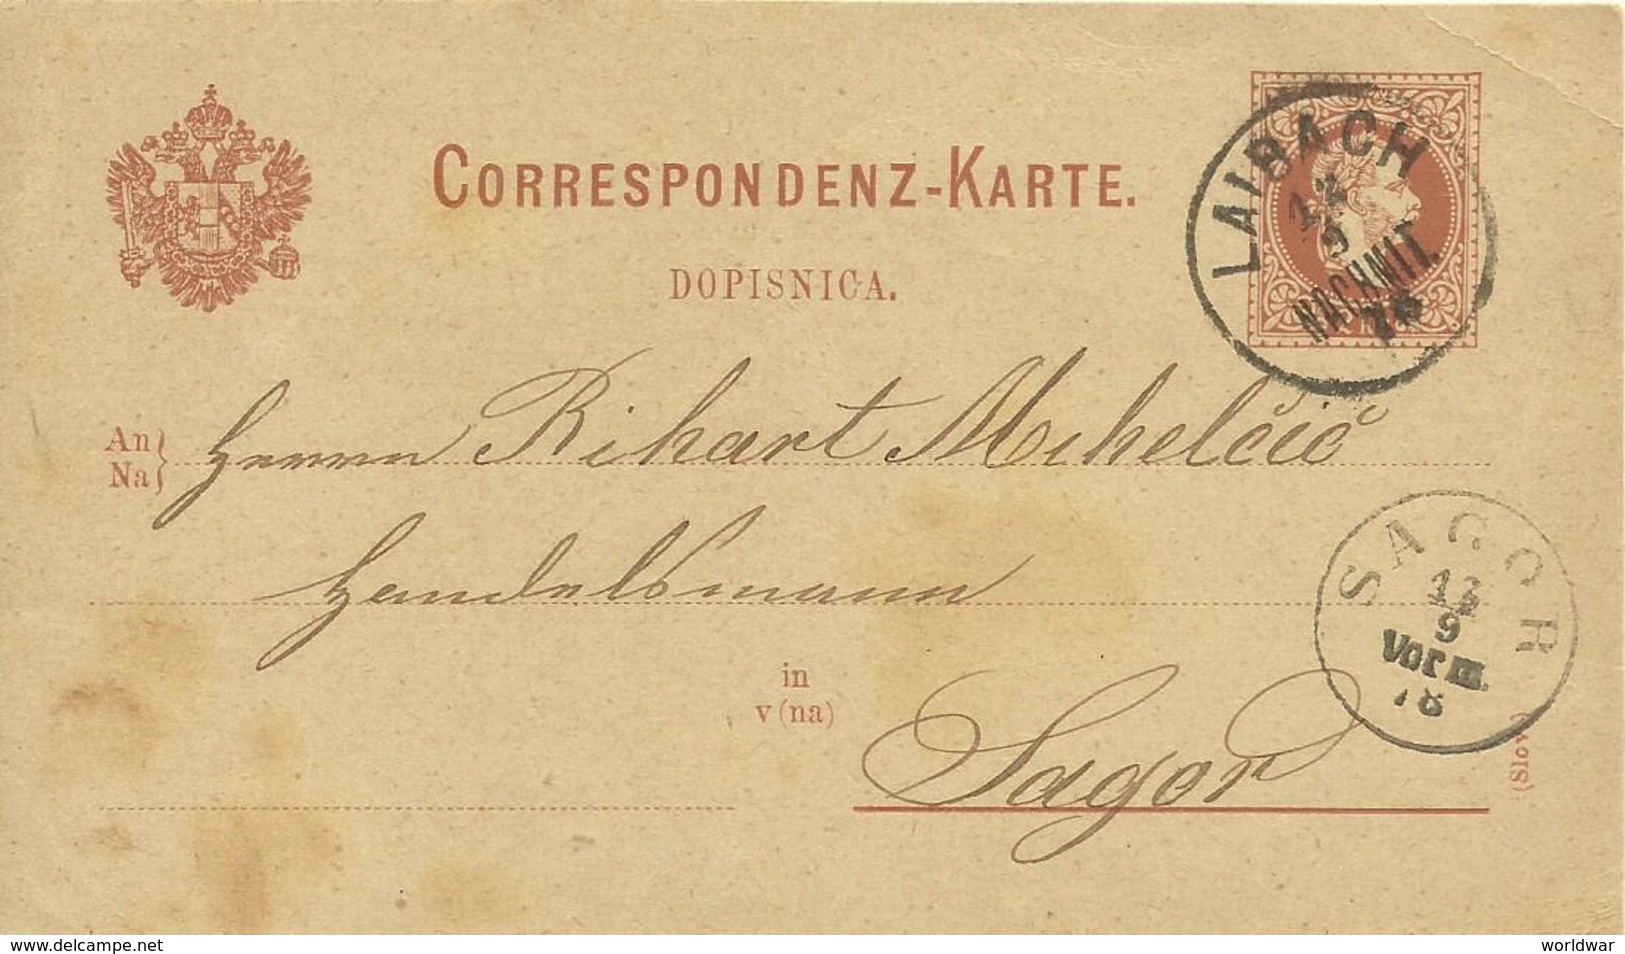 CORRESPONDENZ-KARTE.
DOPISNICA.
LAIBACH
12
9
NACHMIT.
78
An
Na
Herrn Rihart Mihelčič
Handelsmann
in
v (na)
Sagor
SAGOR
9
Vorm.
78
(Slov.)
www.delcampe.net
worldwar